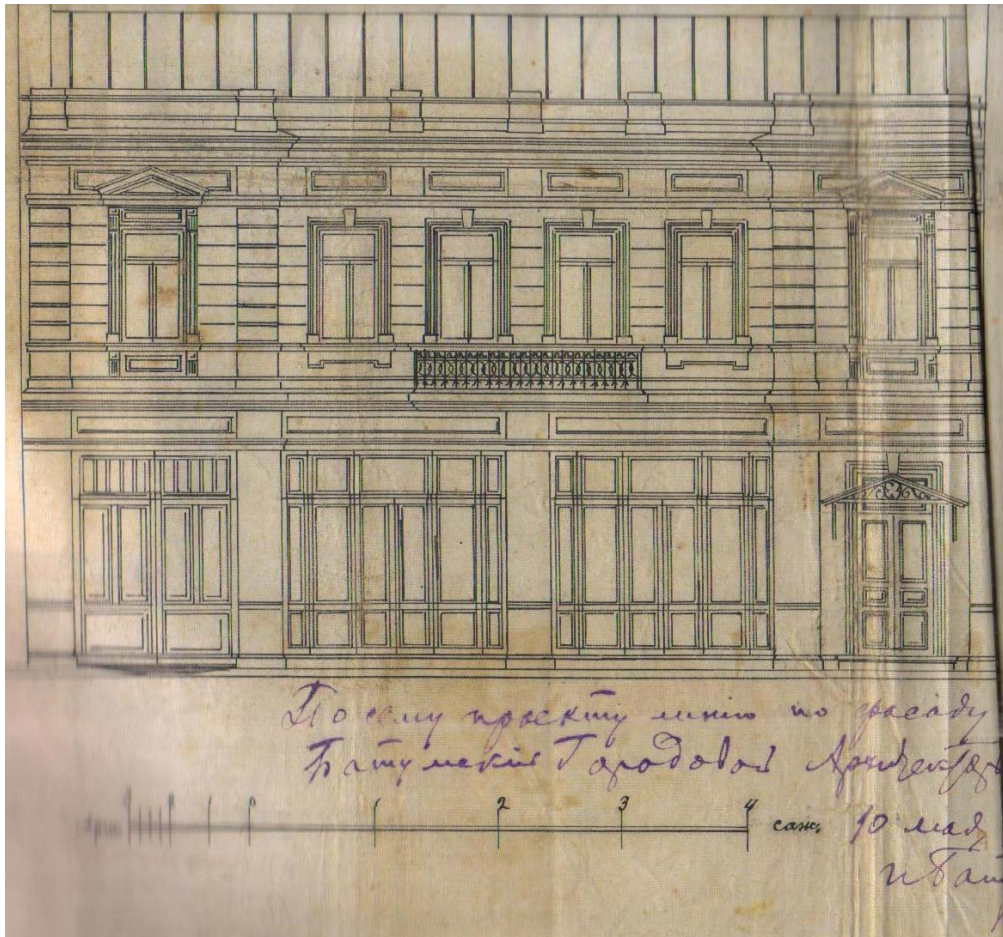 По сему проекту линию по фасаду
Батумский Городовой Архитектор
1 2 3 4 саж. 10 мая
г. Бат